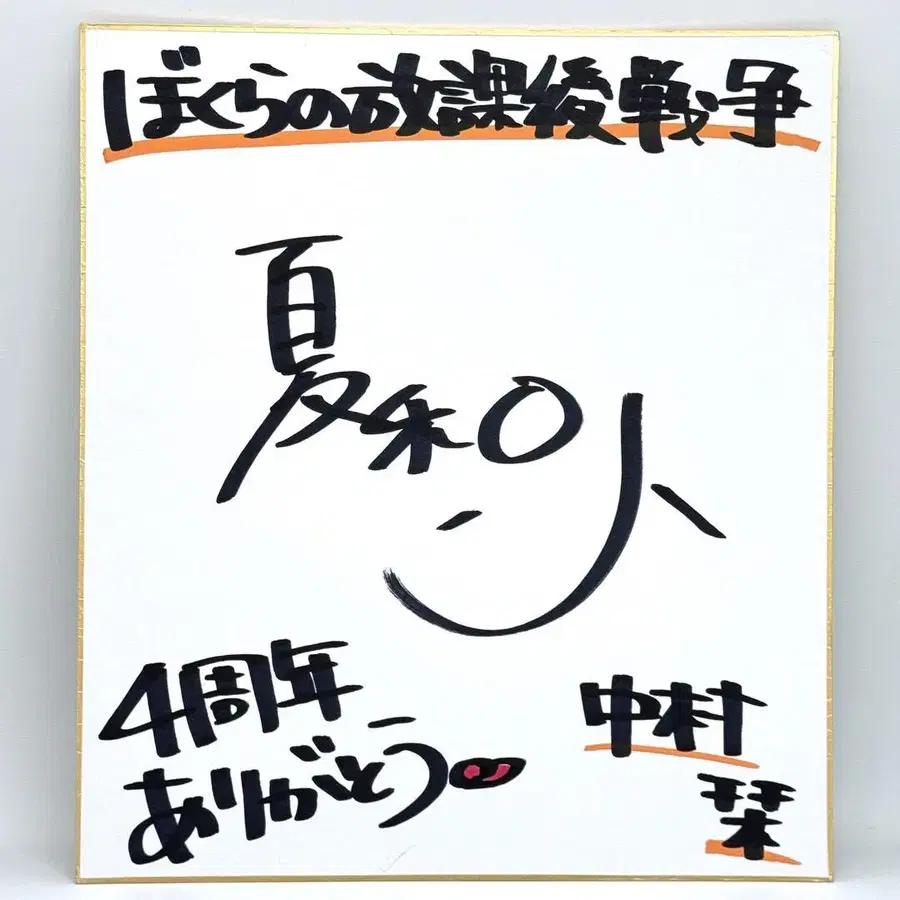 ぼくらの放課後戦争
夏和
4周年
ありがとう
中村
栞